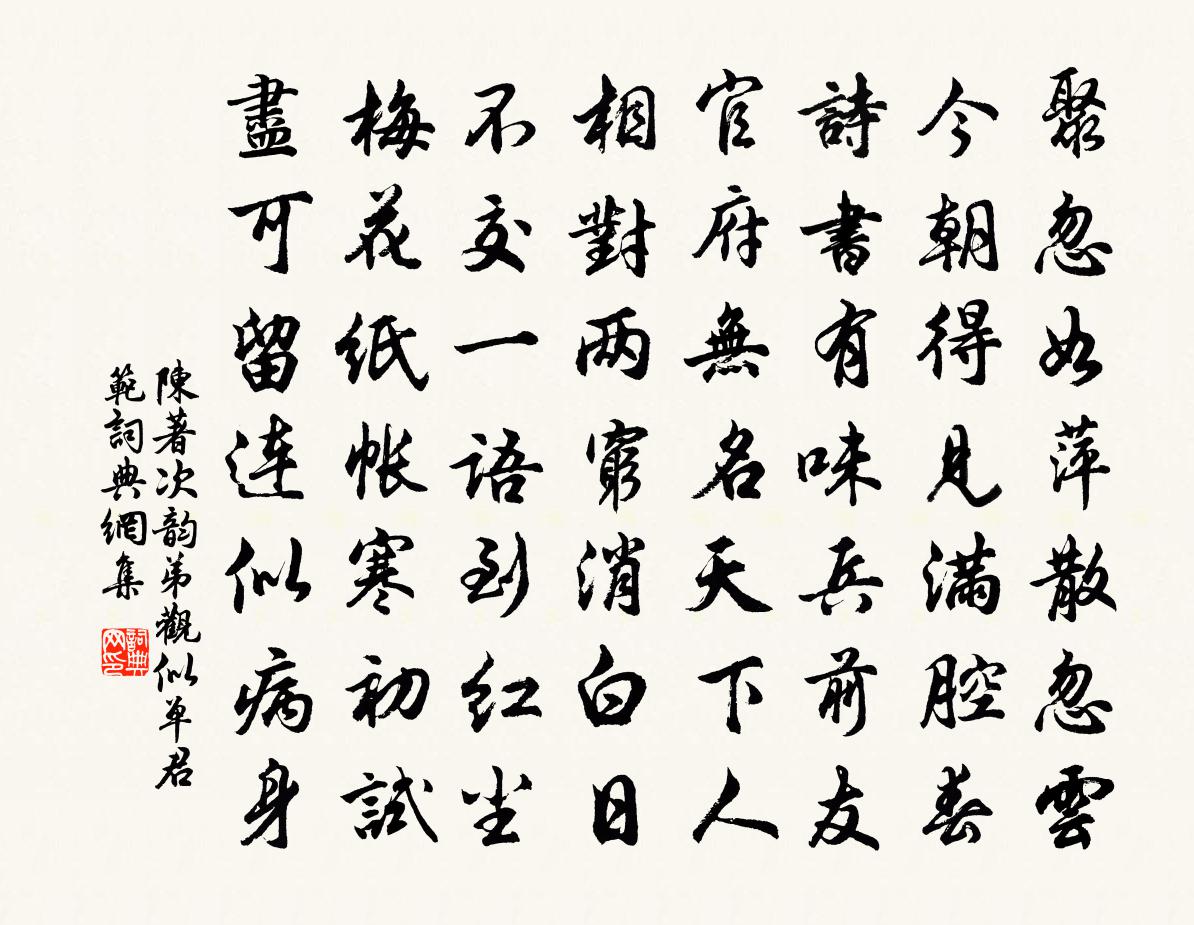 聚忽如萍散忽雲
今朝得見滿腔春
詩書有味兵前友
官府無名天下人
相對兩窮消白日
不交一語到紅尘
梅花紙帳寒初試
盡可留连似病身
陳著次韵弟觀似单君
範詞典網集
詞典网印